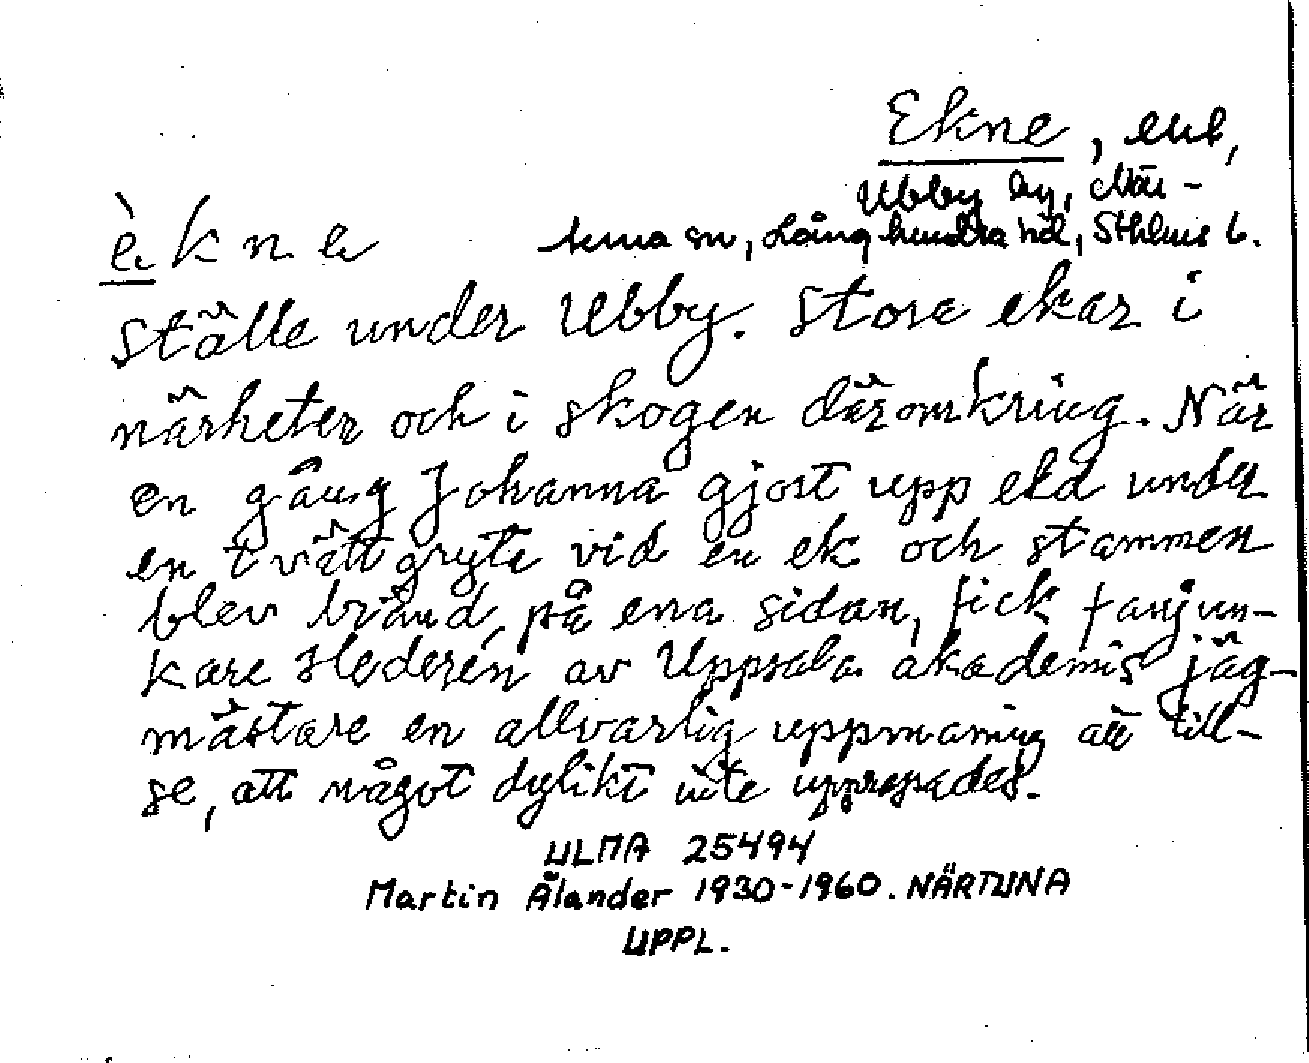 Ekne, enl,
Ubby by, När-
tuna sn, Långhundra hd, Sthlms l.
èkne
Ställe under Ubby. Stora ekar i
närheten och i skogen däromkring. När
en gång Johanna gjort upp eld under
en tvättgryta vid en ek och stammen
blev bränd, på ena sidan, fick fanjun-
kare av Uppsala akademis jäg-
mästare en allvarlig uppmaning att till-
se, att något dylikt inte upprepades.
ULMA 25494
Martin Ålander 1930-1960. NÄRTUNA
UPPL.